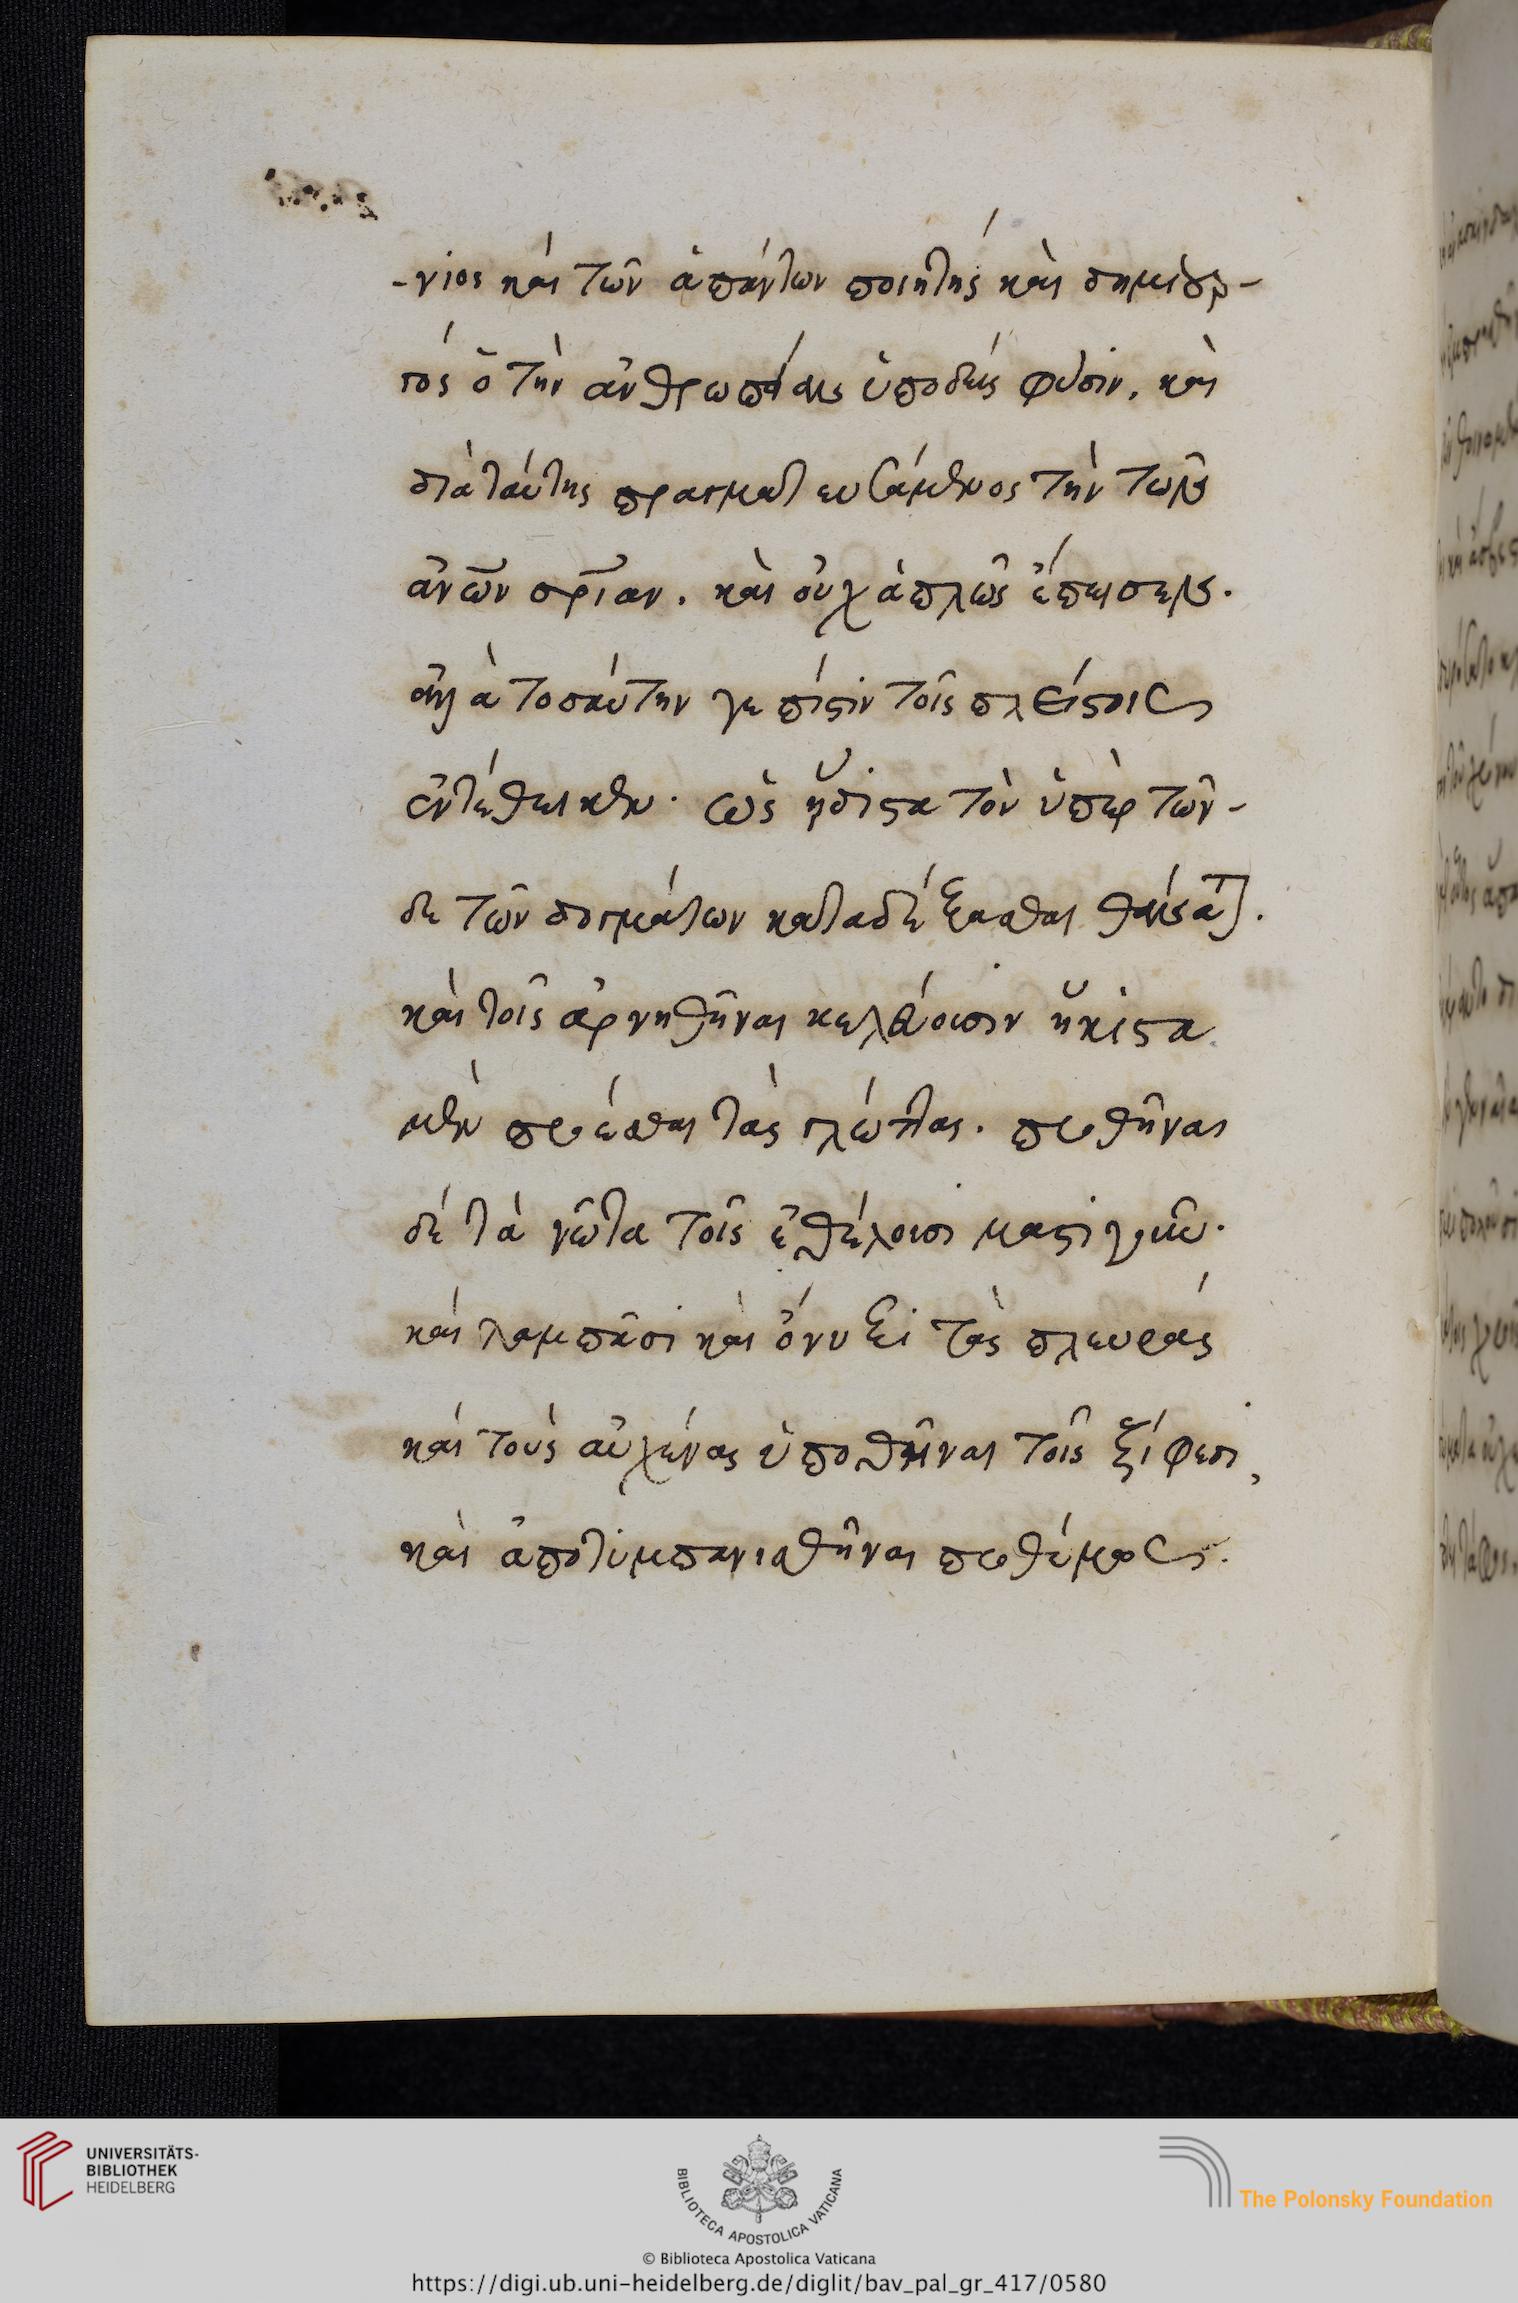 -νιος καὶ τῶν ἁπάντων ποιητὴς καὶ δημιουρ-
γὸς ὁ τὴν ἀνθρωπείαν ὑποδὺς φύσιν, καὶ
διὰ ταύτης πραγματευσάμενος τὴν τῶν
ἀν̅ω̅ν σρ̅ιαν. καὶ οὐχ ἁπλῶς ἔπεισεν.
ἀλλὰ τοσαύτην γε πίστιν τοῖς πλείστοις
ἐντέθεικεν. ὡς ἥδιστα τὸν ὑπὲρ τῶν-
δε τῶν δογμάτων καταδέξασθαι θάνατον.
καὶ τοῖς ἀρνηθῆναι κελεύουσιν ἥκιστα
μὲν προέσθαι τὰς γλώττας. προθῆναι
δὲ τὰ νῶτα τοῖς ἐθέλουσι μαστιγοῦν.
καὶ λαμπᾶσι καὶ ὄνυξι τὰς πλευρὰς
καὶ τοὺς αὐχένας ὑποθῆναι τοῖς ξίφεσι,
καὶ ἀποτυμπανισθῆναι προθύμως.
UNIVERSITÄTS-
BIBLIOTHEK
HEIDELBERG
BIBLIOTECA APOSTOLICA VATICANA
The Polonsky Foundation
© Biblioteca Apostolica Vaticana
https://digi.ub.uni-heidelberg.de/diglit/bav_pal_gr_417/0580